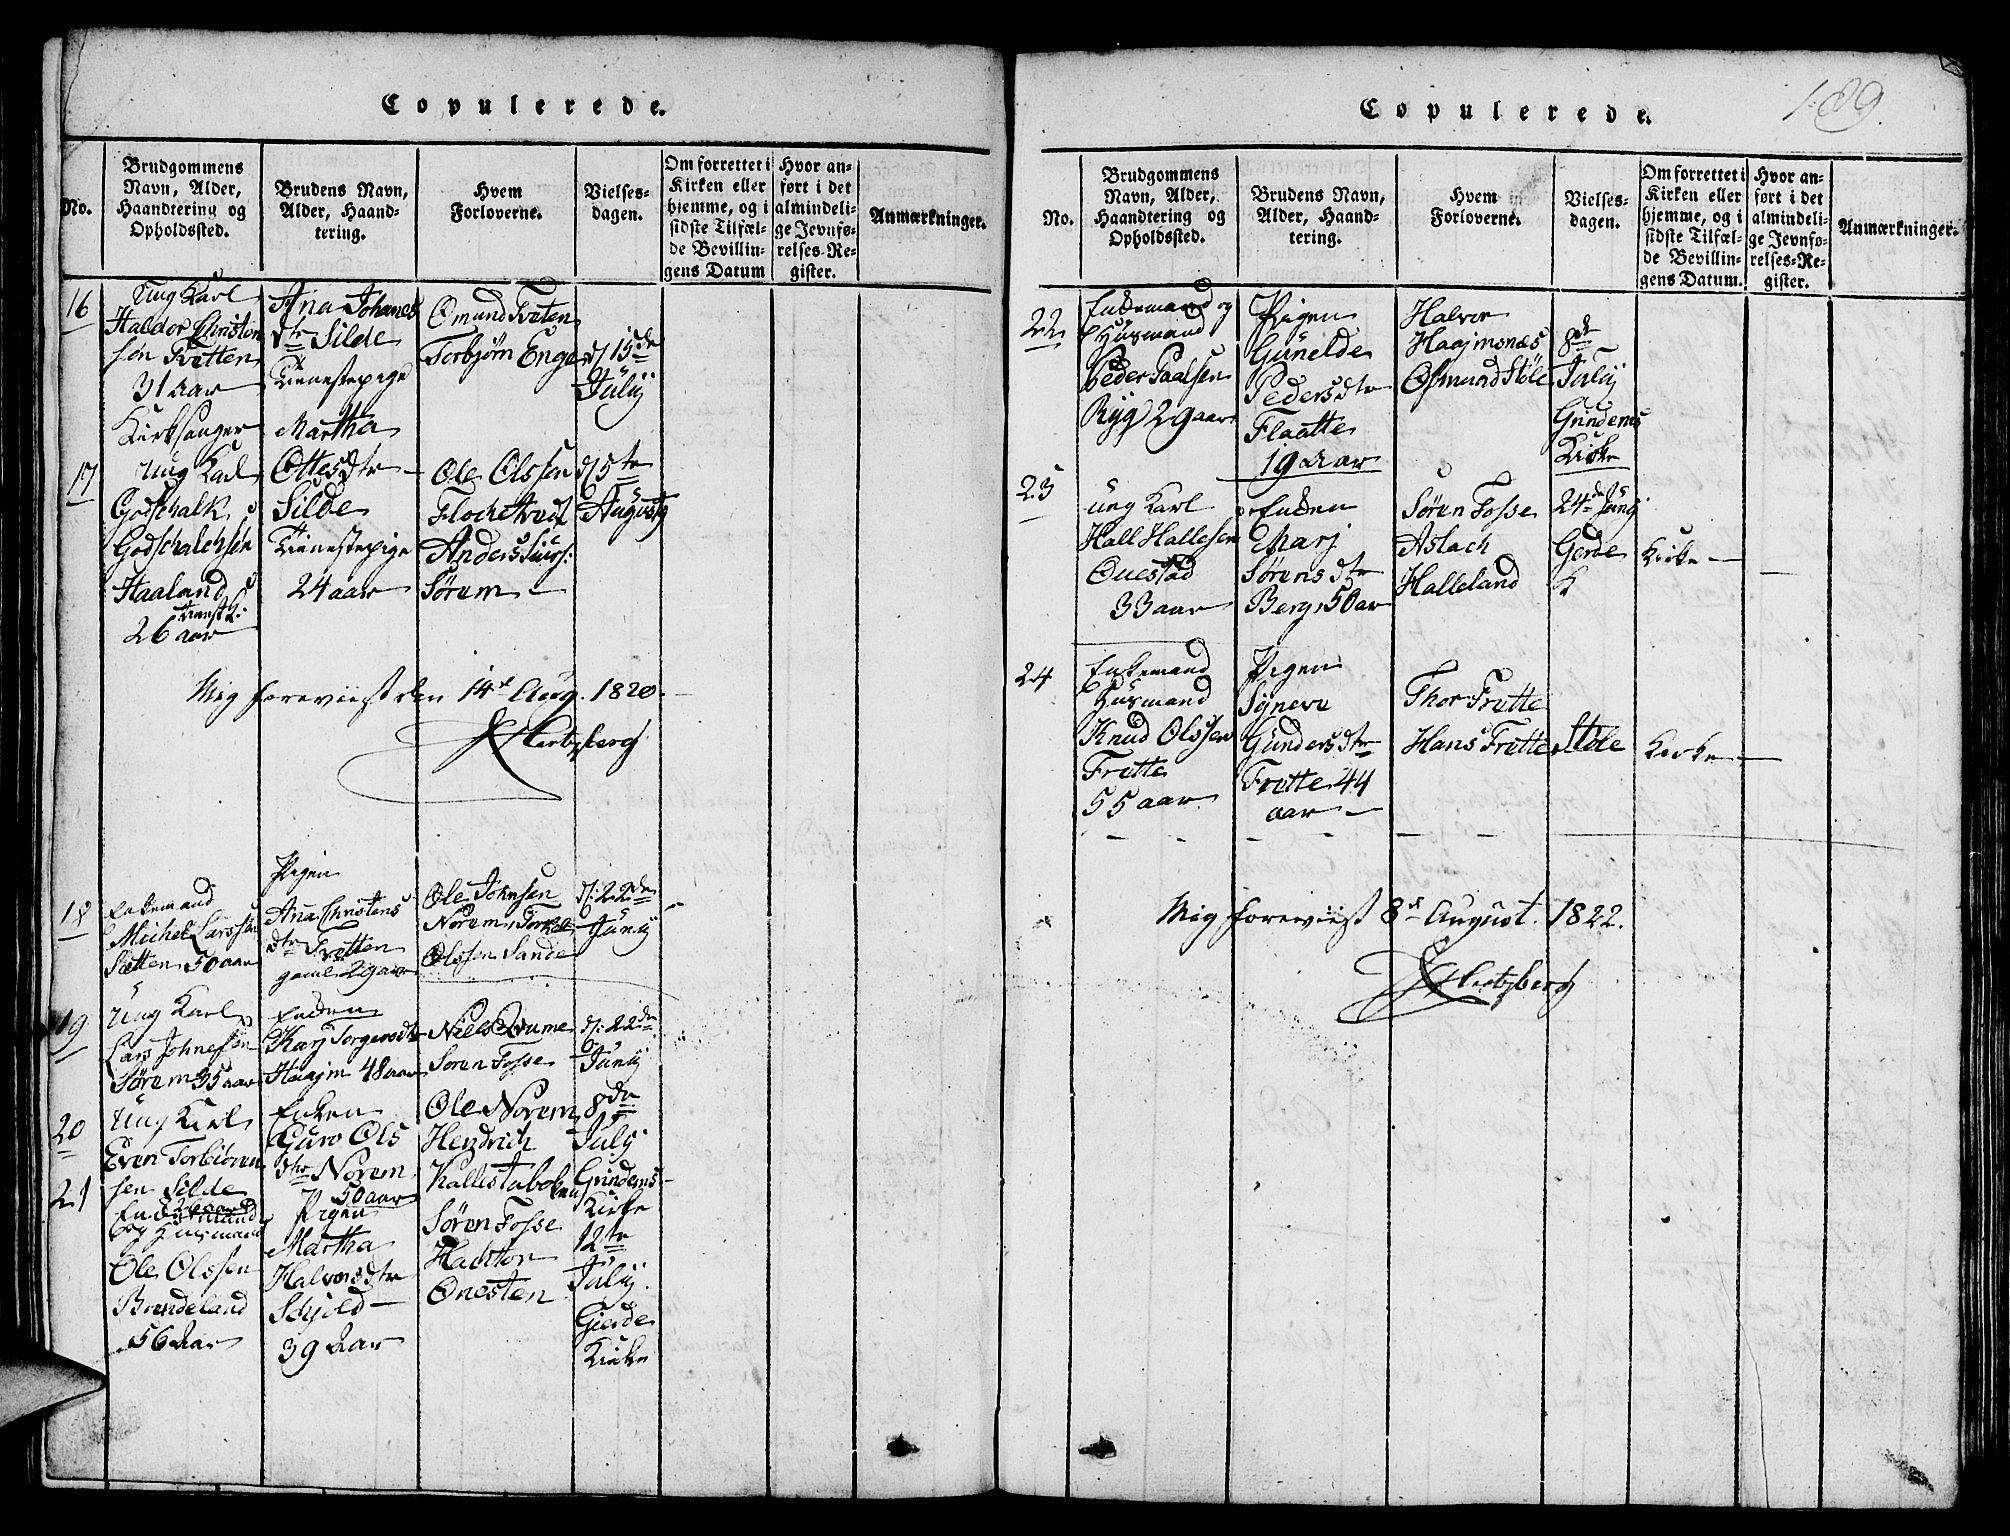 Copulerede.
No.
Brudgommens
Navn, Alder,
Haandtering og
Opholdssted.
Brudens Navn,
Alder, Haand-
tering.
Hvem
Forloverne.
Vielses-
dagen.
Om forrettet i
Kirken eller
hjemme, og i
sidste Tilfæl-
de Bevillin-
gens Datum
Hvor an-
ført i det
almindeli-
ge Jevnfø-
relses-Re-
gister.
Anmærkninger.
16
Ung Karl
Haldor Christen
søn Tvetten
31 aar
Kirksanger
Ana Johanes
dtr Silde
Tienestepige
Omund Tveten
Torbjørn Enge
d. 15de
Julij
17
Ung Karl
Godschalk
Godschalchsøn
Haaland
tienest K:
26 aar
Martha
Ottesdtr
Silde
Tienestepige
24 aar
Ole Olssen
Flochetvedt
Anders
Sørem
d. 5te
Augusty
Mig foreviist den 14de Aug. 1820.
Hertzberg
18
Enkemand
Michel Larssen
Sætten 50 aar
Pigen
Ana Christens
dtr Tvetten
gaml 29 aar
Ole Johnsen
Norem, Torkel
Olssen Sande
d. 22de
Junij
19
Ung Karl
Lars Johnesøn
Sørem 35 aar
Enken
Karj Torgersdtr
Haajm 48 aar
Niels Drume
Søren Fosse
d. 22de
Junij
20
Ung Karl
Even Torbiøren
sen Silde
26 aar
Enken
Guro Ols
dtr Norem
50 aar
Ole Norem
Hendrich
Kallestaboken
8de
Julij
Grindems
Kirke
21
Enkemand
og Huusmand
Ole Olssen
Brendeland
56 Aar
Pigen
Martha
Halvorsdtr
Schjold
39 Aar
Søren Fosse
Hadttor
Onesten
12te
Julij
Gierde
Kirke
Copulerede.
189.
No.
Brudgommens
Navn, Alder,
Haandtering og
Opholdssted.
Brudens Navn,
Alder, Haand-
tering.
Hvem
Forloverne.
Vielses-
dagen.
Om forrettet i
Kirken eller
hjemme, og i
sidste Tilfæl-
de Bevillin-
gens Datum.
Hvor an-
ført i det
almindeli-
ge Jevnfø-
relses-Re-
gister.
Anmærkninger.
22
Enkemand og
Huusmand
Peder Paalsen
Ryg 29 aar
Pigen
Gunelde
Pedersdtr
Flaatte
19 Aar
Halvor
Haajmsnæs
Osmund Støle
8de
Julij
Grindems
Kirke
23
Ung Karl
Hall Hallesen
Ouestad
33 aar
Enken
Marj
Sørensdtr
Berg, 50 ar
Søren Fosse
Aslach
Halleland
24de Junij
Gerde
K
Kirke
24
Enkemand
Huusmand
Knud Olssen
Frette
55 aar
Pigen
Syneva
Gundersdtr
Frette 44
aar
Thor Frette
Hans Frette
Støle
Kirke
Mig foreviist 8de August. 1822.
Hertzberg